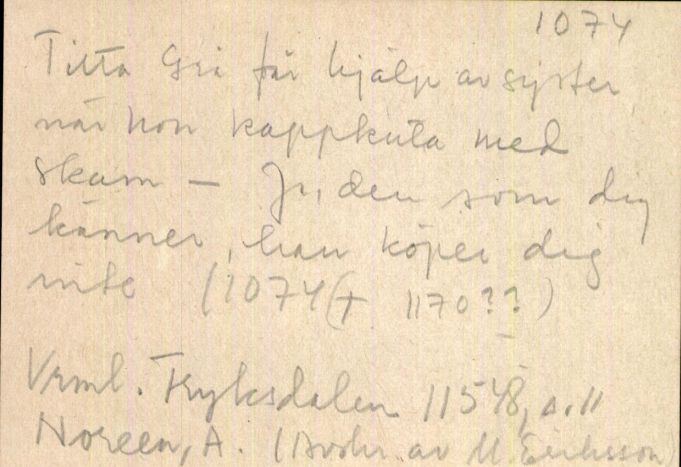 1074
Titta Grå får hjälp av syster,
när hon kappkuta med
skam – Ja, den som dig
känner, han köper dig
inte (1074 (+ 1170??)
Vrml. Fryksdalen 11548, s. 11
Noreen, A. (Avskr. av M. Eriksson)